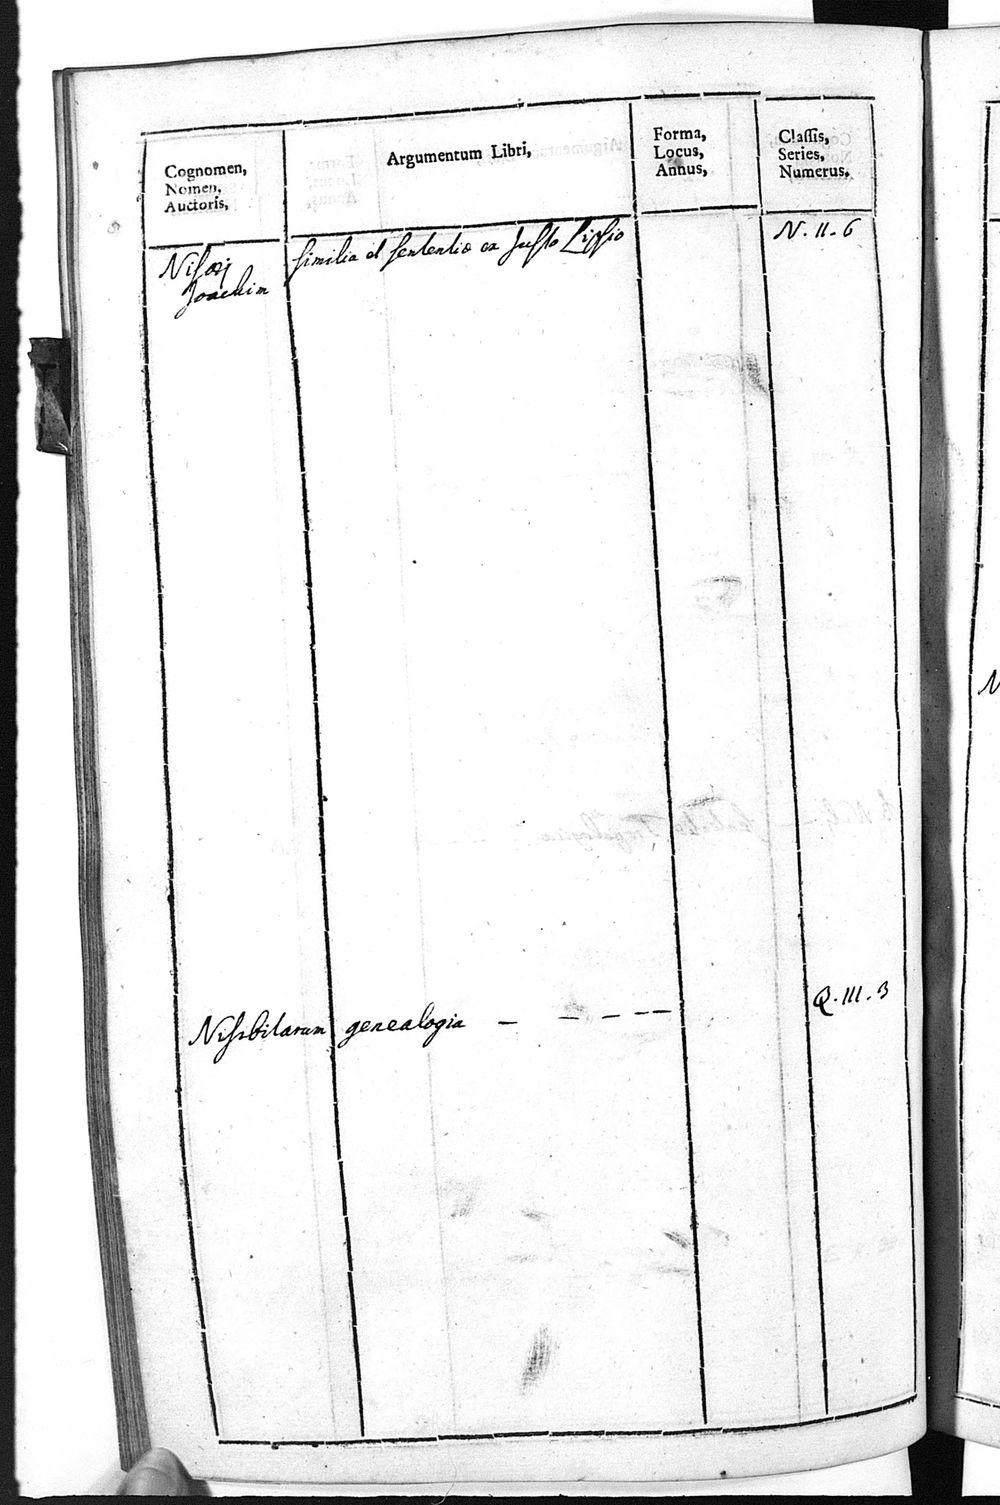 Cognomen,
Nomen,
Auctoris,
Argumentum Libri,
Forma,
Locus,
Annus,
Classis,
Series,
Numerus,
Joachim
similia et sententiæ ex Justo Lipsio
N. II. 6
genealogia — — — — —
Q. III. 3